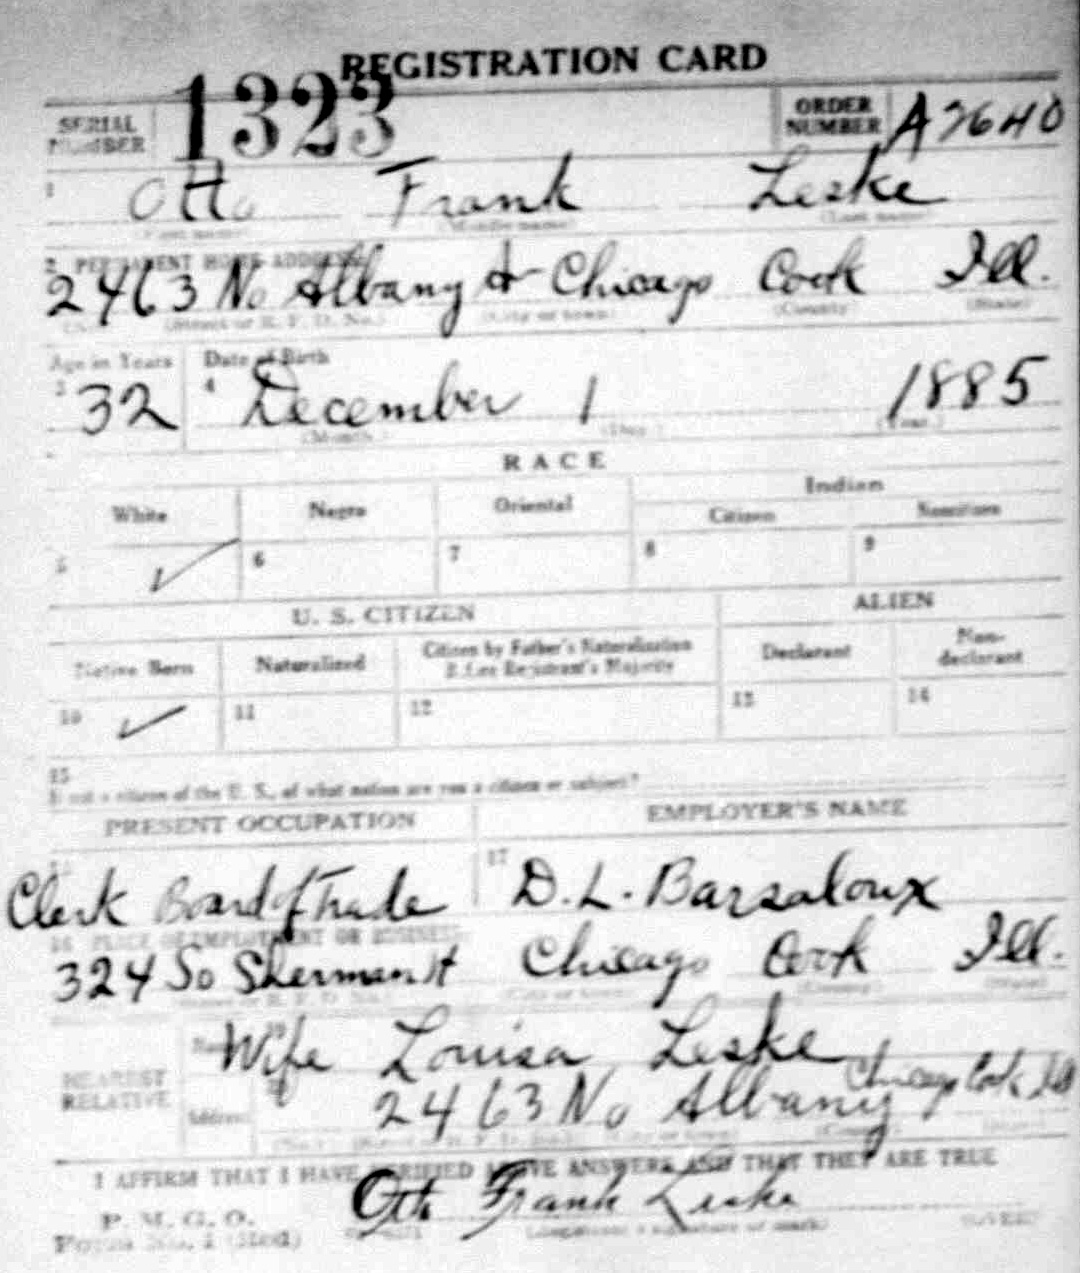 REGISTRATION CARD
SERIAL NUMBER 1323 ORDER NUMBER A2640
1 Otto Frank Leske
(First name) (Middle name) (Last name)
2 PERMANENT HOME ADDRESS:
2463 No Albany St Chicago Cook Ill.
(No.) (Street or R. F. D. No.) (City or town) (County) (State)
Age in Years Date of Birth
3 32 4 December 1 1885
(Month.) (Day.) (Year.)
RACE
White Negro Oriental Indian
Citizen Noncitizen
5 ✓ 6 7 8 9
U. S. CITIZEN ALIEN
Native Born Naturalized Citizen by Father's Naturalization Before Registrant's Majority Declarant Non-declarant
10 ✓ 11 12 13 14
15
If not a citizen of the U. S., of what nation are you a citizen or subject?
PRESENT OCCUPATION EMPLOYER'S NAME
16 Clerk Board of Trade 17 D. L. Barsaloux
18 PLACE OF EMPLOYMENT OR BUSINESS:
324 So Sherman St Chicago Cook Ill.
(No.) (Street or R. F. D. No.) (City or town) (County) (State)
NEAREST RELATIVE Name 19 Wife Louisa Leske
Address 20 2463 No Albany Chicago Cook Ill
(No.) (Street or R. F. D. No.) (City or town) (County) (State)
I AFFIRM THAT I HAVE VERIFIED ABOVE ANSWERS AND THAT THEY ARE TRUE
P. M. G. O.
Form No. 1 (Red)
Otto Frank Leske
(Registrant's signature or mark)
(OVER)